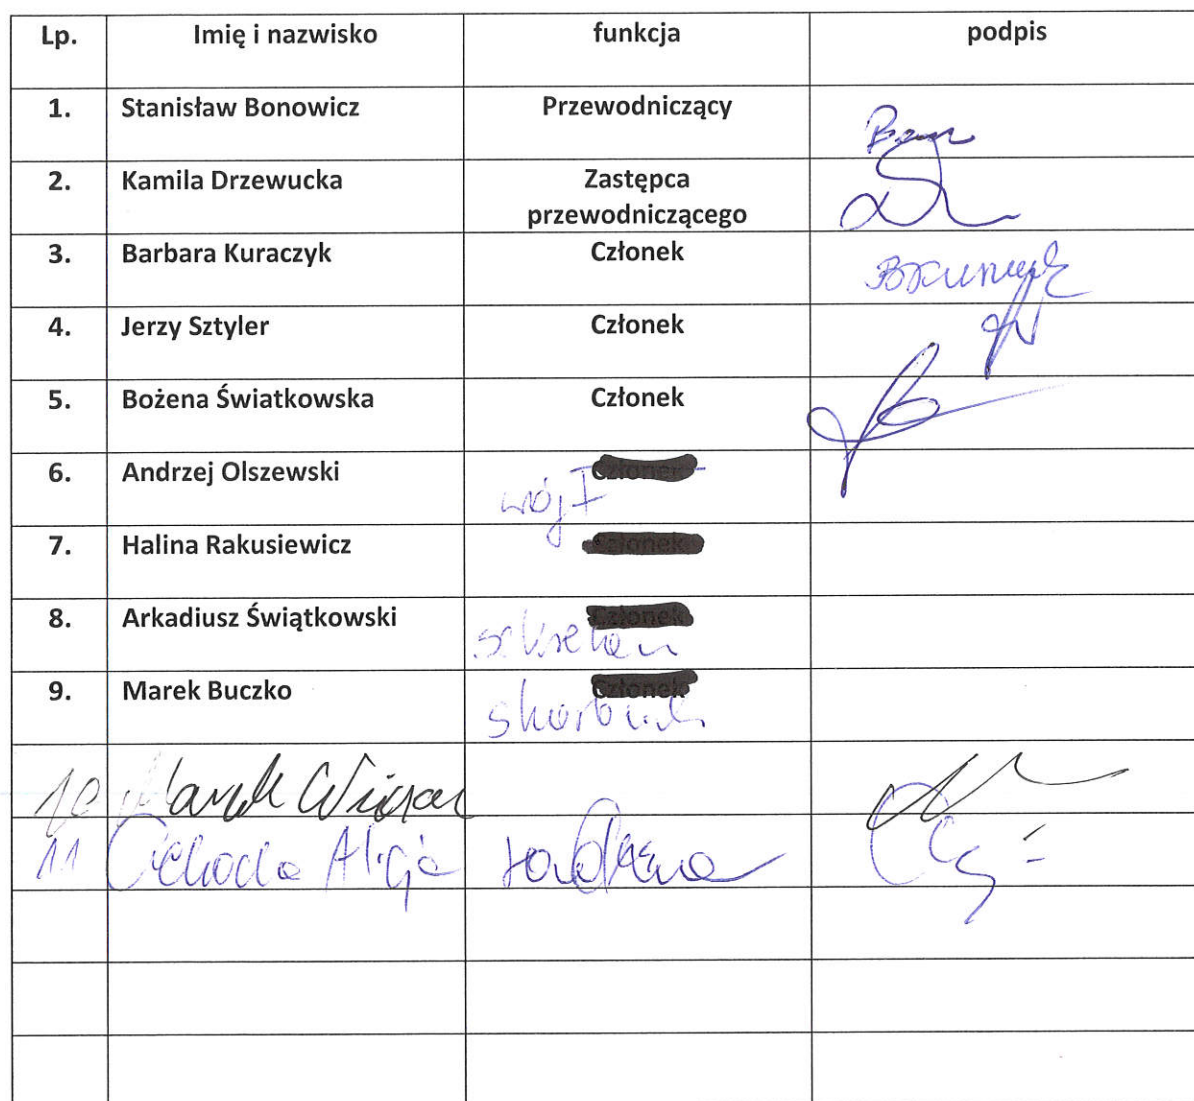 Lp. Imię i nazwisko funkcja podpis
1. Stanisław Bonowicz Przewodniczący
2. Kamila Drzewucka Zastępca
przewodniczącego
3. Barbara Kuraczyk Członek
4. Jerzy Sztyler Członek
5. Bożena Światkowska Członek
6. Andrzej Olszewski Członek
wójt
7. Halina Rakusiewicz Członek
8. Arkadiusz Świątkowski Członek
sekretarz
9. Marek Buczko Członek
skarbnik
10 Marek
11 Cichocka Alicja radna